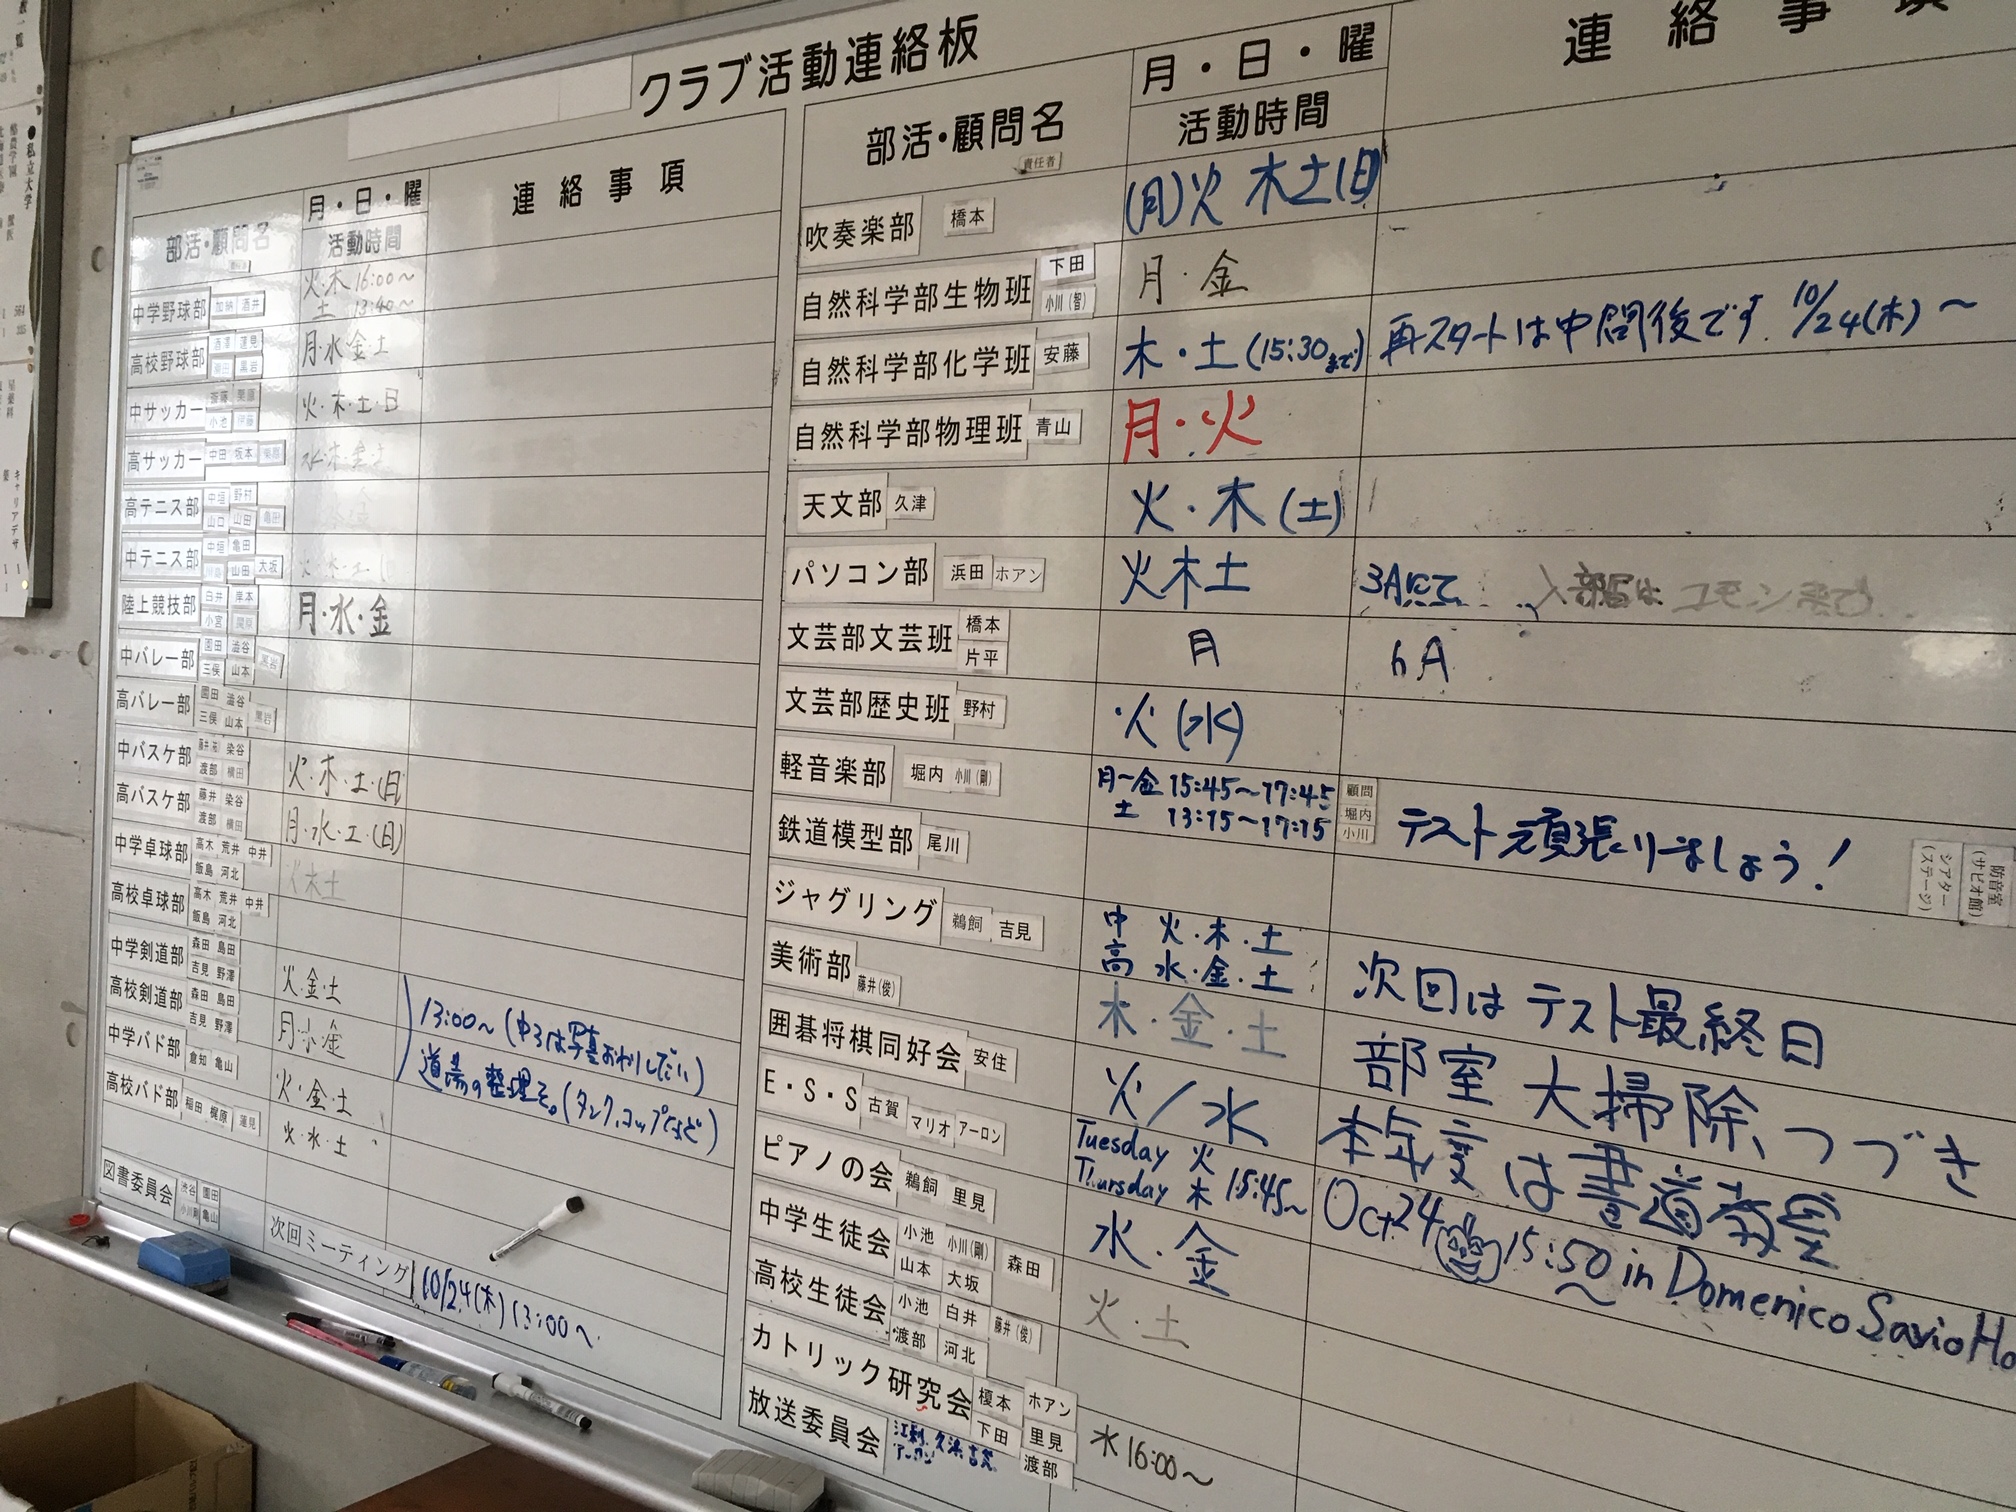 クラブ活動連絡板
部活・顧問名
月・日・曜
活動時間
連絡事項
中学野球部 加納 酒井 火・木 16:00～
土 13:40～
高校野球部 酒澤 蓮見 黒岩 月・水 金・土
中サッカー 小池 伊藤 火・木・土・日
高サッカー 中田 坂本
高テニス部 中垣 野村
山口 山田 亀田
中テニス部 中垣 亀田
山田 大坂
陸上競技部 白井 岸本 月・水・金
小宮
中バレー部 園田 澁谷
三俣 山本 黒岩
高バレー部 園田 澁谷
三俣 山本 黒岩
中バスケ部 染谷
渡部 横田
火・木・土・(月)
高バスケ部 藤井 染谷
渡部 横田
月・水・土・(日)
中学卓球部 高木 荒井 中井
飯島 河北
木土
高校卓球部 高木 荒井 中井
飯島 河北
中学剣道部 森田 島田
吉見 野澤
火・金・土
高校剣道部 森田 島田
吉見 野澤
月・水・金
13:00～(中3は写真
道場の整理を。(タンク、コップなど)
中学バド部 倉知 亀山 火・金・土
高校バド部 稲田 梶原 蓮見 火・水・土
図書委員会 渋谷 園田
小川剛 亀山
次回ミーティング 10/24(木) 13:00～
部活・顧問名
責任者
月・日・曜
活動時間
連絡事項
吹奏楽部 橋本 (月)火 木土(日)
自然科学部生物班 下田
小川(智)
月・金
自然科学部化学班 安藤 木・土(15:30まで) 再スタートは中間後です 10/24(木)～
自然科学部物理班 青山 月・火
天文部 久津 火・木(土)
パソコン部 浜田 ホアン 火木土 3Aにて 入部届は
文芸部文芸班 橋本
片平
月 6A
文芸部歴史班 野村 火(水)
軽音楽部 堀内 小川(剛) 月～金 15:45～17:45
土 13:15～17:15
顧問
堀内
小川
テスト頑張りましょう!
防音室(サビオ館)
シアター(ステージ)
鉄道模型部 尾川
ジャグリング 鵜飼 吉見 中 火・木・土
高 水・金・土
次回はテスト最終日
美術部 藤井(俊) 木・金・土 部室大掃除、つづき
囲碁将棋同好会 安住 火/水 本年度は書道教室
E・S・S 古賀 マリオ アーロン Tuesday 火
Thursday 木 15:45～
Oct24 15:50～ in Domenico Savio Ho
ピアノの会 鵜飼 里見 水・金
中学生徒会 小池 小川(剛) 森田
山本 大坂
火・土
高校生徒会 小池 白井 藤井(俊)
渡部 河北
カトリック研究会 榎本 ホアン
下田 里見
水 16:00～
放送委員会 渡部